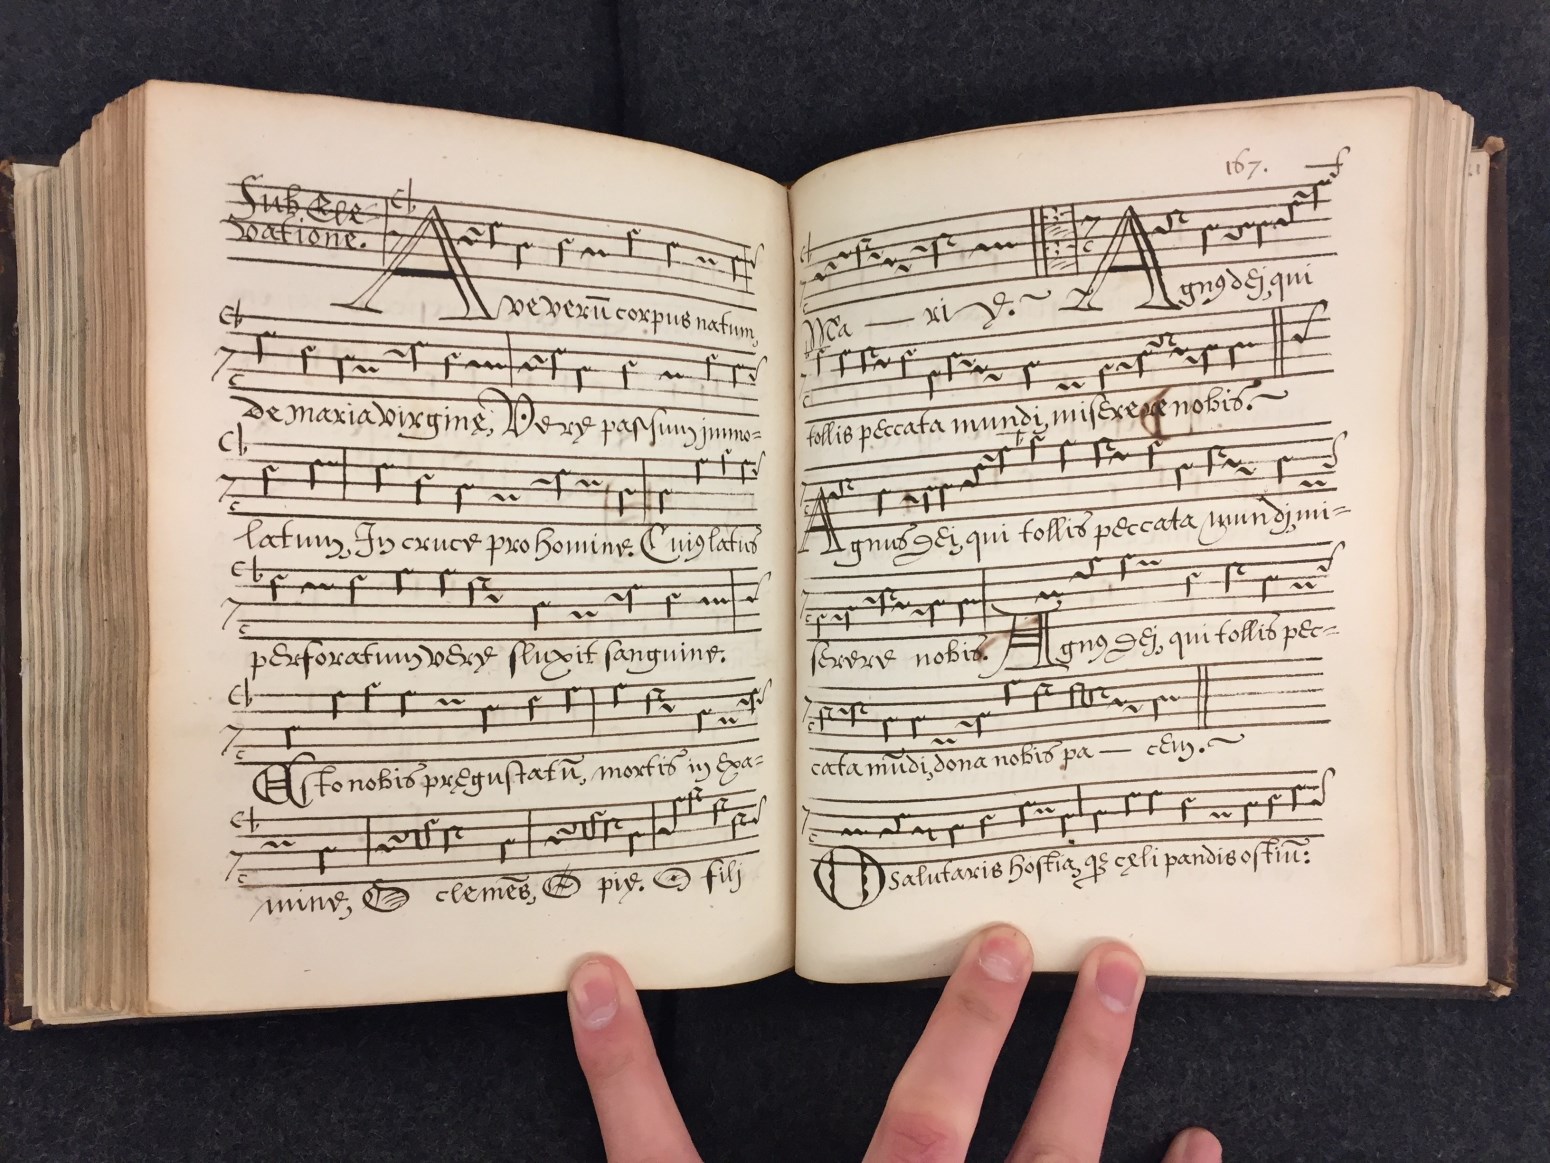 Sub Ele-
vatione.
Ave verū corpus natum,
de maria virgine, Vere passum immo-
latum, In cruce pro homine. Cuiꝰ latus
perforatum vere fluxit sanguine.
Esto nobis pręgustatū, mortis in exa-
mine, O clemēs, O pie. O fili
167.
Ma — ri ę.
Agnꝰ dei, qui
tollis peccata mundi, miserere nobis.
Agnus Dei, qui tollis peccata mundi, mi-
serere nobis. Agnꝰ Dei, qui tollis pec-
cata mūdi, dona nobis pa — cem.
O salutaris hostia, cęli pandis ostiū: